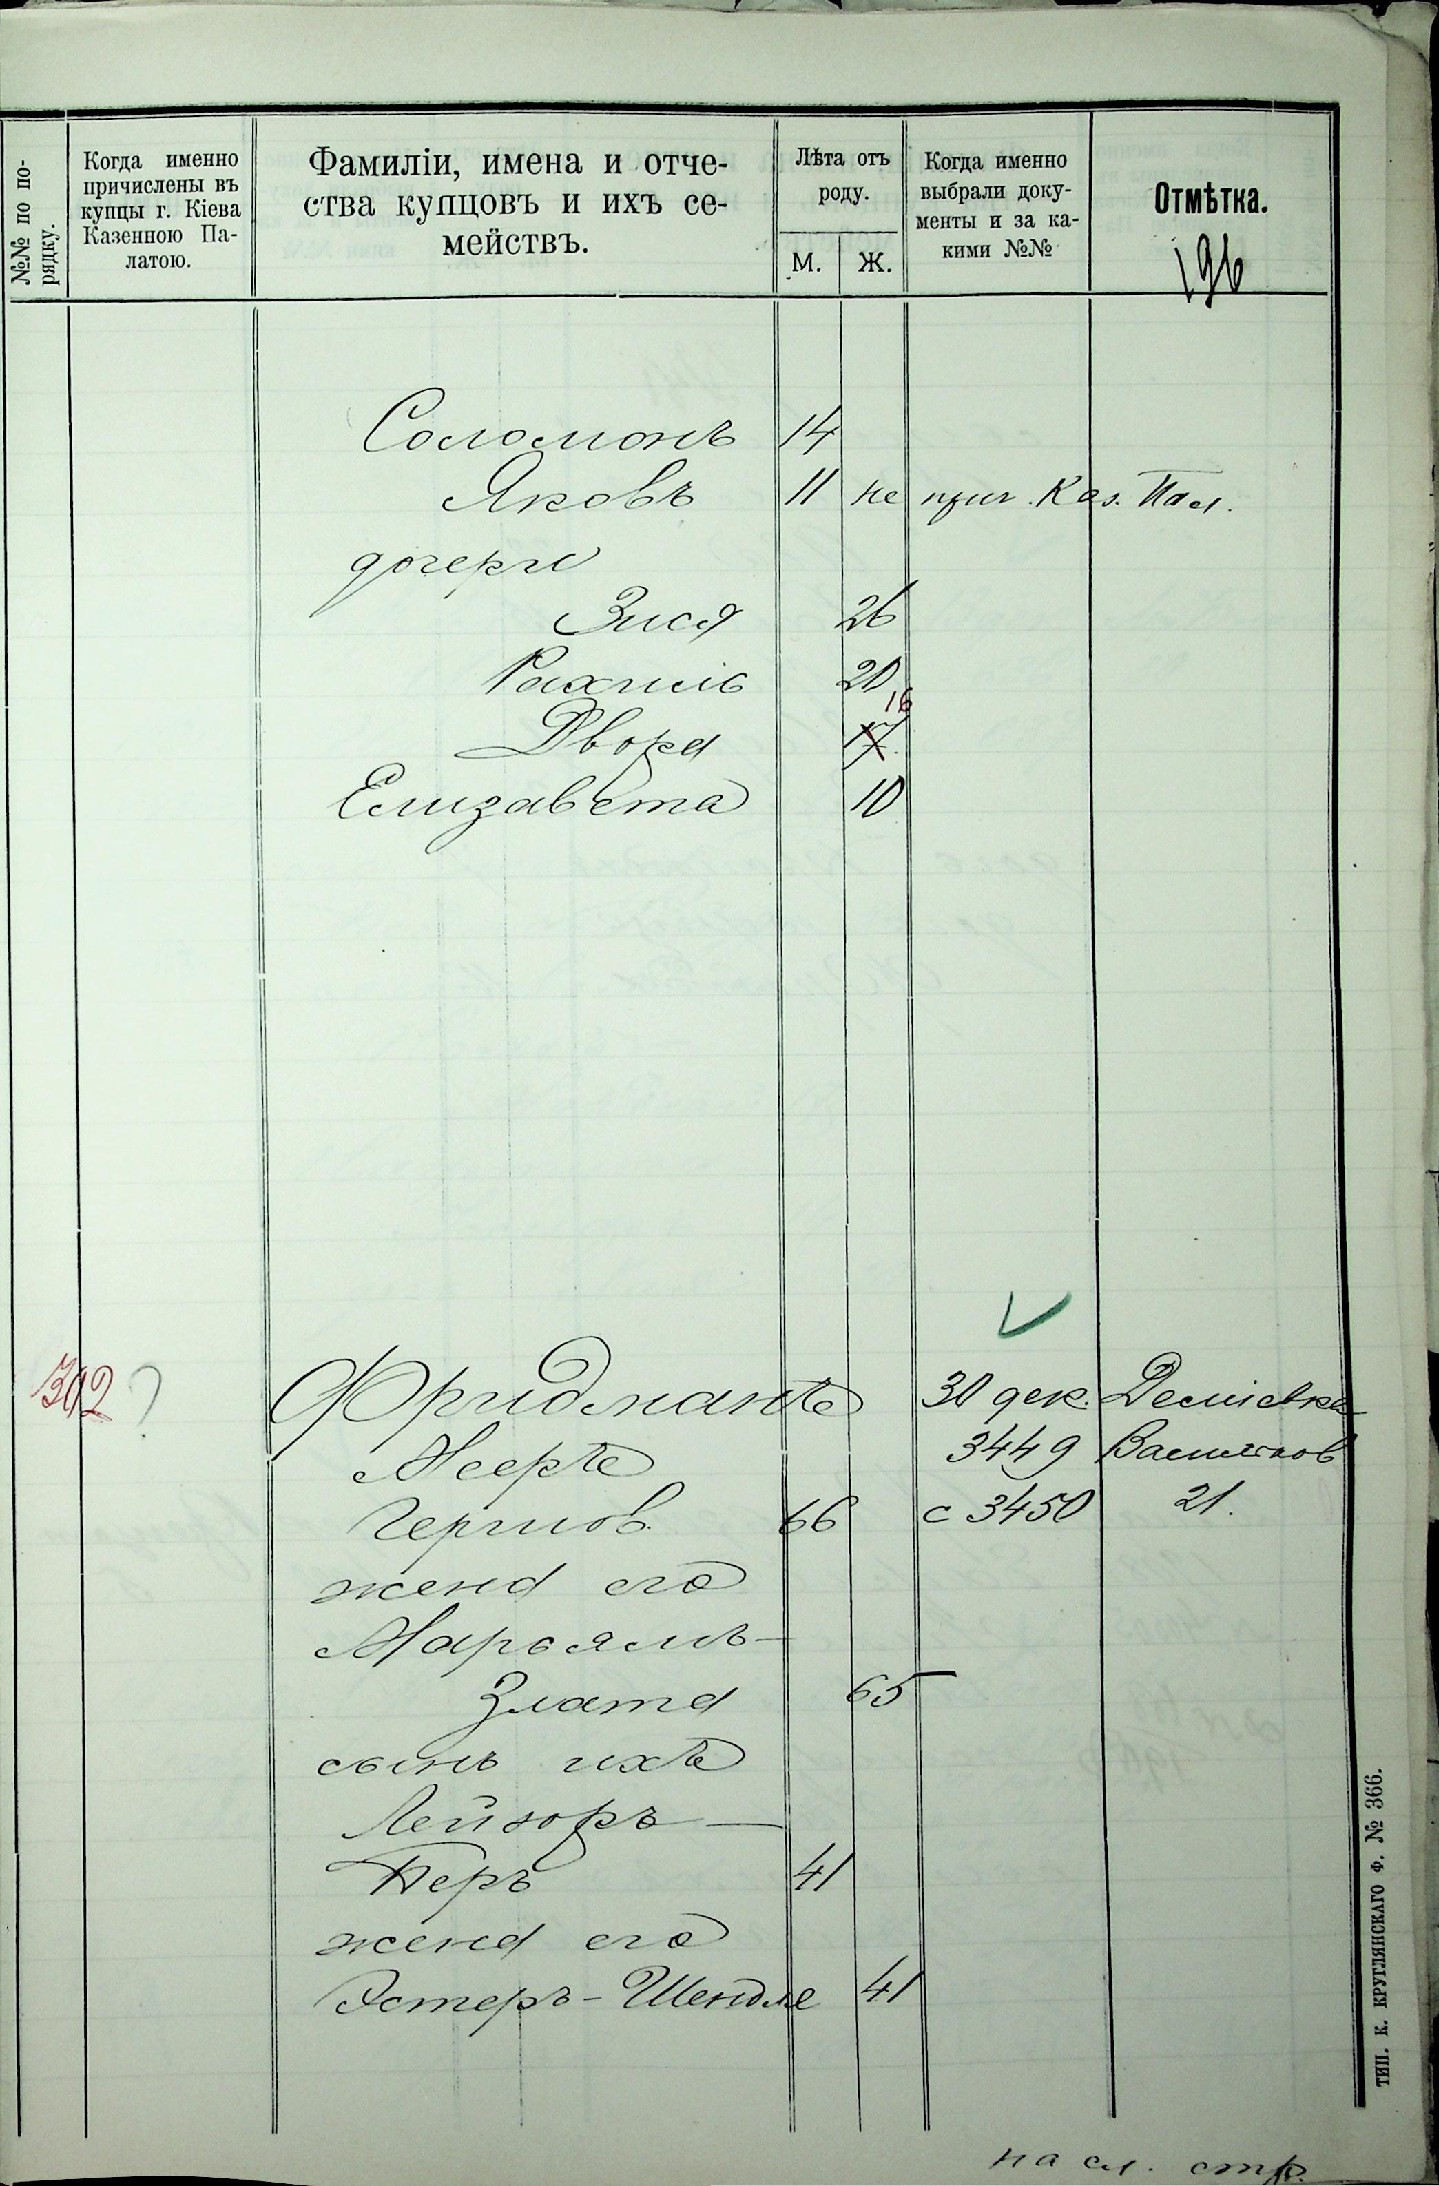 №№ по по-
рядку.
Когда именно
причислены въ
купцы г. Кіева
Казенною Па-
латою.
Фамиліи, имена и отче-
ства купцовъ и ихъ се-
мействъ.
Лѣта отъ
роду.
М. Ж.
Когда именно
выбрали доку-
менты и за ка-
кими №№
Отмѣтка.
196
Соломонъ 14
Яковъ 11 не прич. Каз. Пал.
дочери
Зися 26
Рахиль 20
16
Двора 17
Елизавета 10
302 ? Фридманъ 30 дек. Деміевка
Мееръ 3449 Васильков
Гершов. 66 с 3450 21.
жена его
Марьямъ-
Злата 65
сынъ ихъ
Лейзоръ —
Беръ 41
жена его
Эстеръ - Шендля 41
на сл. стр.
ТИП. К. КРУГЛЯНСКАГО Ф. № 366.